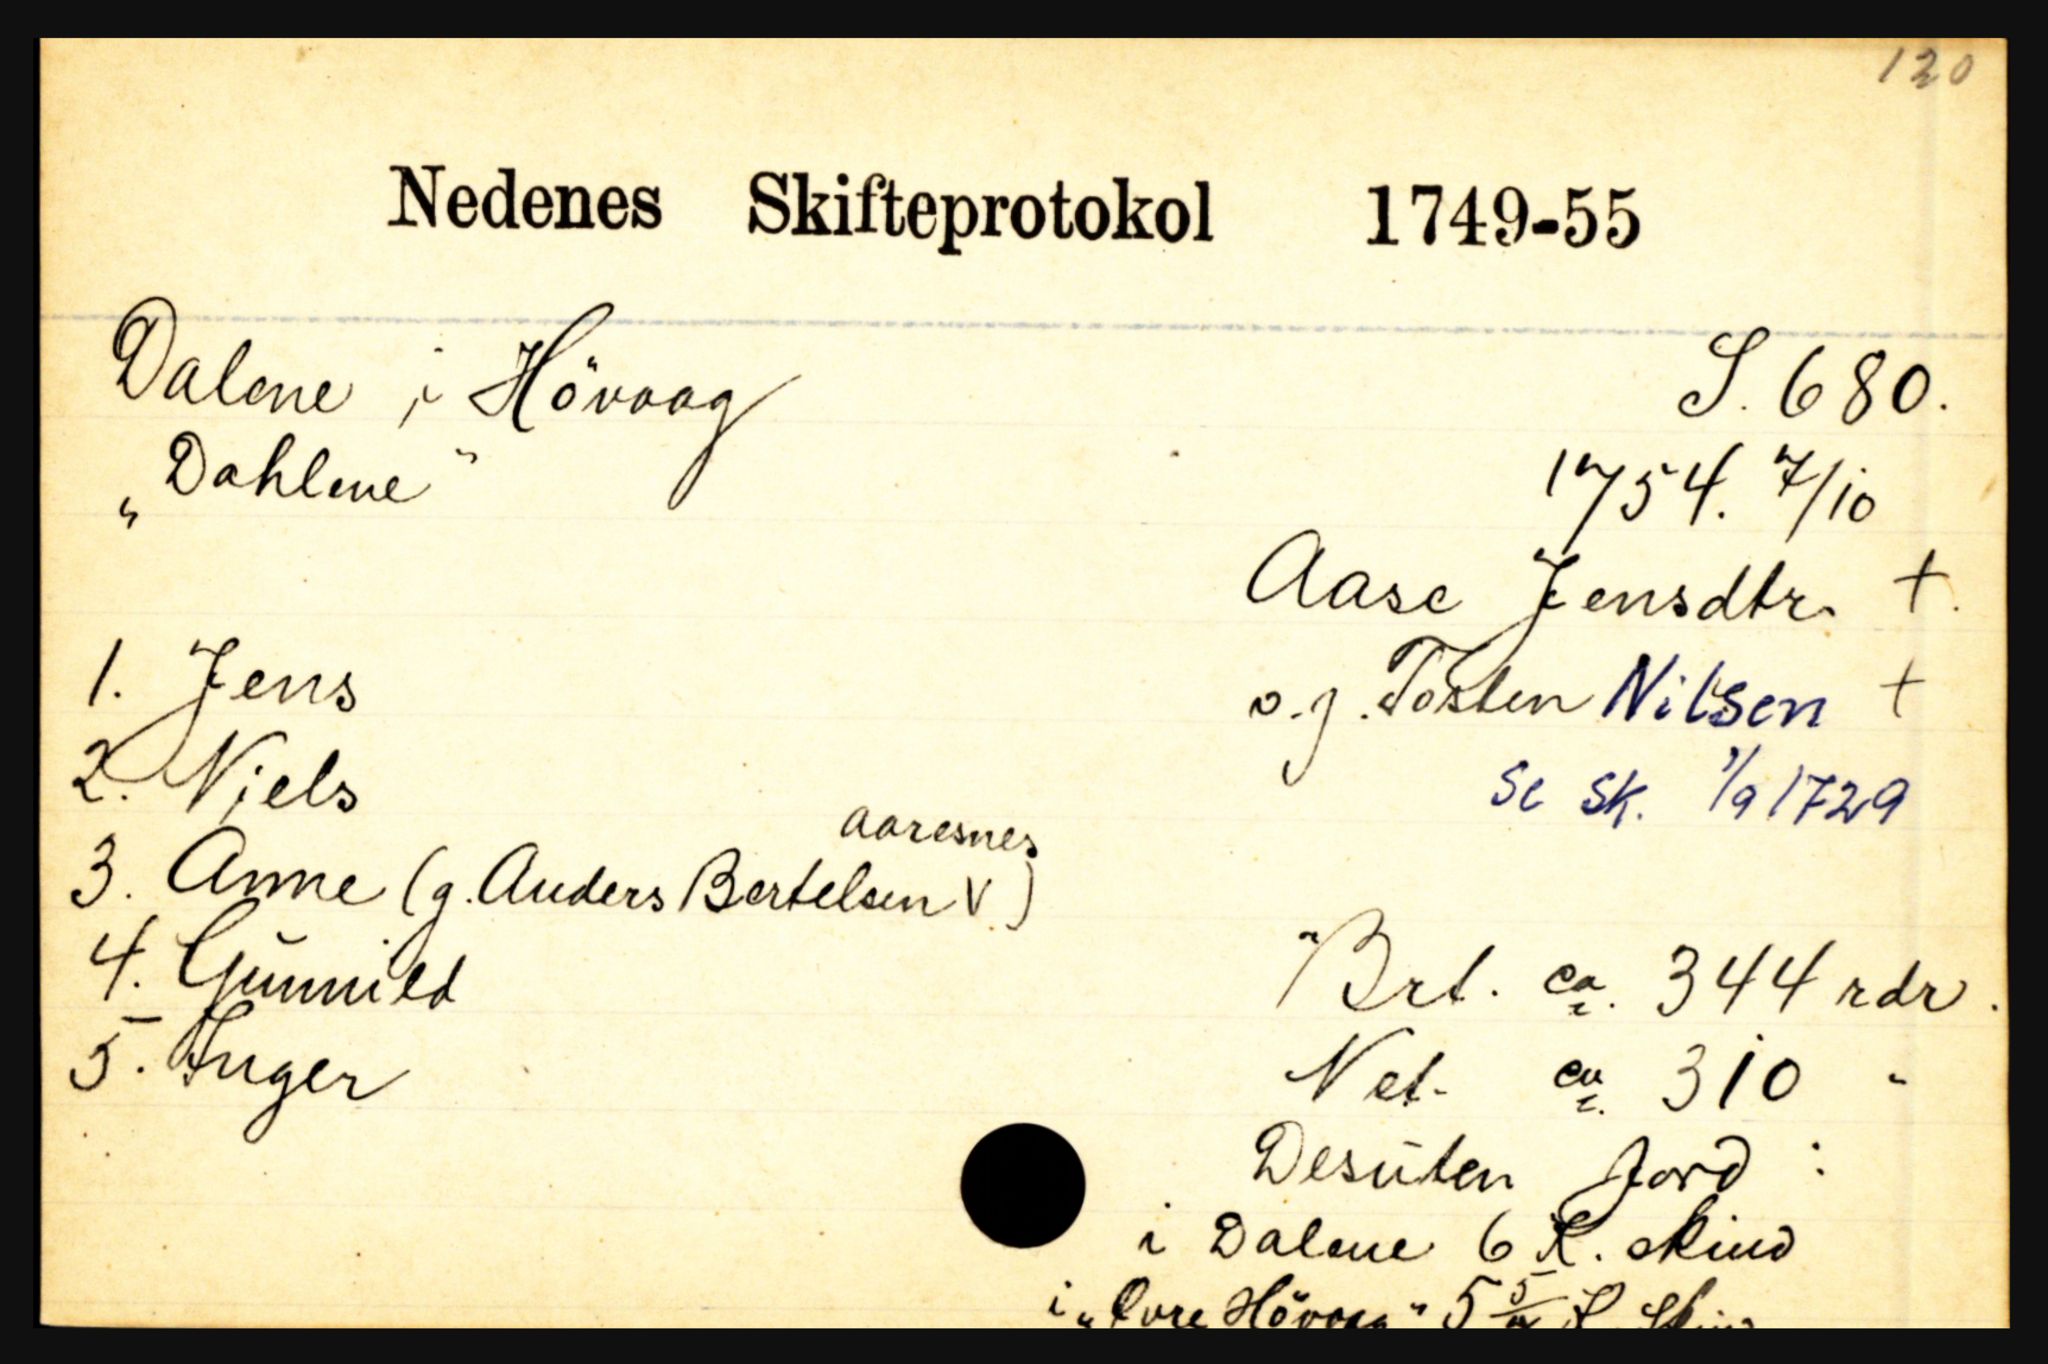 120
Nedenes Skifteprotokol 1749-55
Dalene i Hövaag
S. 680.
„Dahlene"
1754. 7/10
Aase Jensdtr. †.
1. Jens
o.g. Tosten Nilsen †
2. Niels
Se sk. 1/9 1729
Aaresnes
3. Anne (g. Anders Bertelsen V)
4. Gunnild
Brt. ca. 344 rdr.
5. Inger
Net. ca. 310 "
Desuten Jord:
i Dalene 6 K. skind
i „Øvre Hövaag" 5